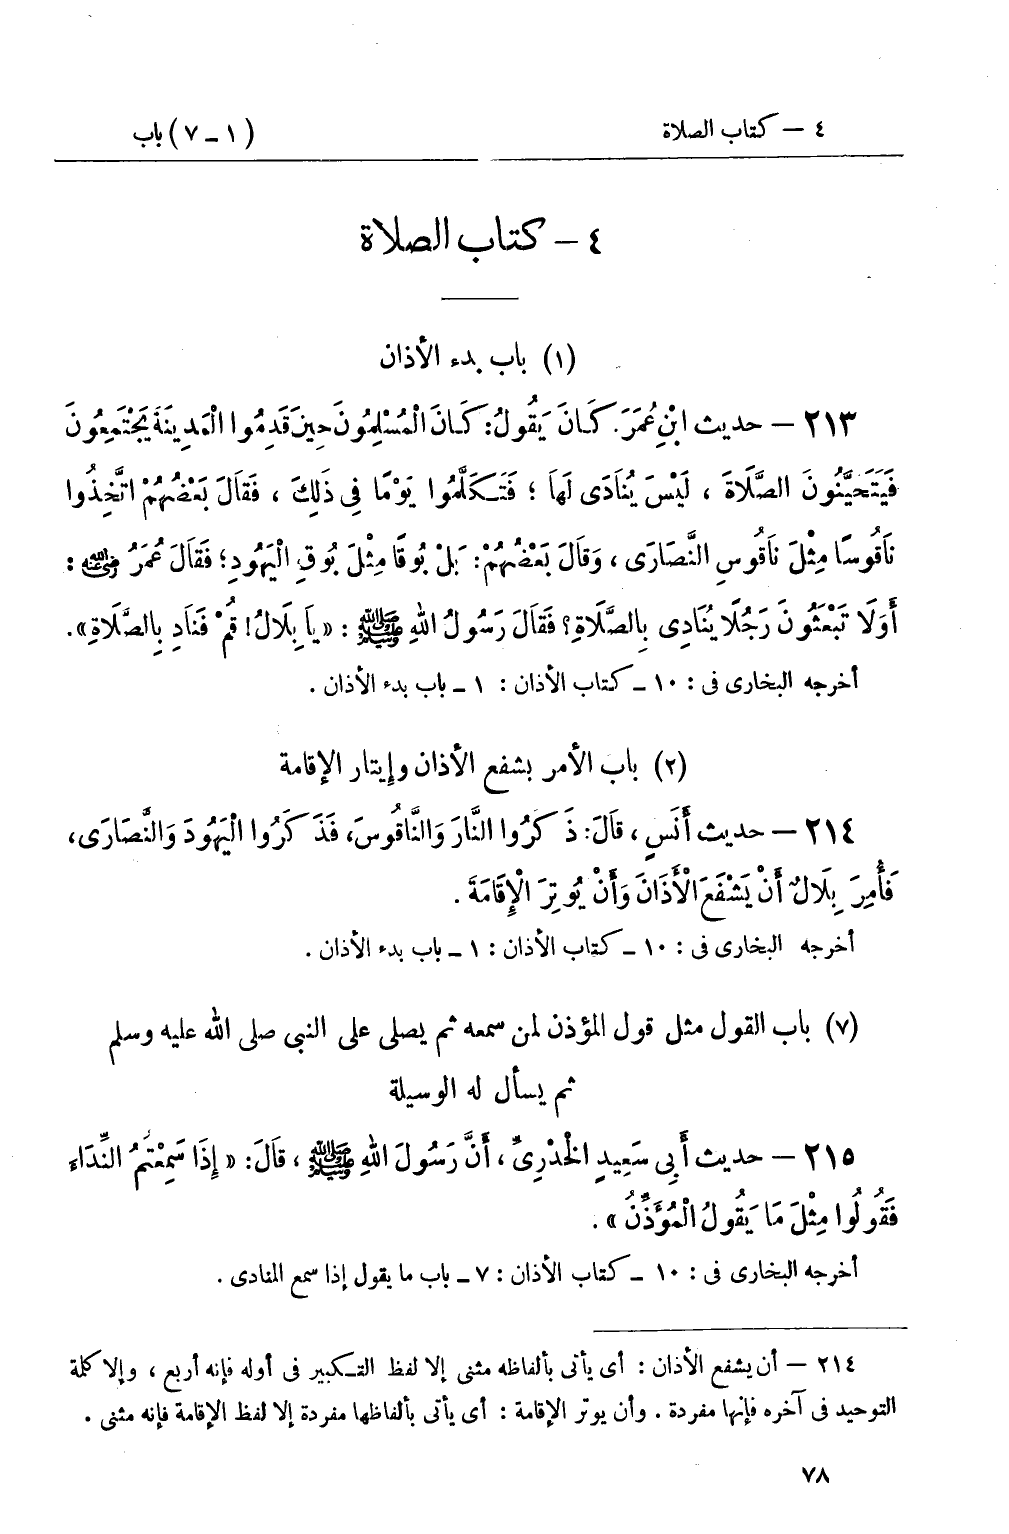 ٤ — كتاب الصلاة (١ ــ ٧) باب
٤ — كتاب الصلاة
(١) باب بدء الأذان
٢١٣ — حديث ابْنِ عُمَرَ. كَانَ يَقُولُ: كَانَ الْمُسْلِمُونَ حِينَ قَدِمُوا الْمَدِينَةَ يَجْتَمِعُونَ
فَيَتَحَيَّنُونَ الصَّلَاةَ ، لَيْسَ يُنَادَى لَهَا ؛ فَتَكَلَّمُوا يَوْمًا فِى ذَلِكَ ، فَقَالَ بَعْضُهُمْ اتَّخِذُوا
نَاقُوسًا مِثْلَ نَاقُوسِ النَّصَارَى ، وَقَالَ بَعْضُهُمْ: بَلْ بُوقًا مِثْلَ بُوقِ الْيَهُودِ؛ فَقَالَ عُمَرُ رضي الله عنه :
أَوَلَا تَبْعَثُونَ رَجُلًا يُنَادِى بِالصَّلَاةِ؟ فَقَالَ رَسُولُ اللهِ ﷺ : «يَا بِلَالُ! قُمْ فَنَادِ بِالصَّلَاةِ».
أخرجه البخارى فى : ١٠ ــ كتاب الأذان : ١ ــ باب بدء الأذان .
(٢) باب الأمر بشفع الأذان وإيتار الإقامة
٢١٤ — حديث أَنَسٍ ، قَالَ: ذَكَرُوا النَّارَ وَالنَّاقُوسَ، فَذَكَرُوا الْيَهُودَ وَالنَّصَارَى،
فَأُمِرَ بِلَالٌ أَنْ يَشْفَعَ الْأَذَانَ وَأَنْ يُوتِرَ الْإِقَامَةَ .
أخرجه البخارى فى : ١٠ ــ كتاب الأذان : ١ ــ باب بدء الأذان .
(٧) باب القول مثل قول المؤذن لمن سمعه ثم يصلى على النبى صلى الله عليه وسلم
ثم يسأل له الوسيلة
٢١٥ — حديث أَبِى سَعِيدٍ الْخُدْرِىِّ ، أَنَّ رَسُولَ اللهِ ﷺ ، قَالَ: «إِذَا سَمِعْتُمُ النِّدَاءَ
فَقُولُوا مِثْلَ مَا يَقُولُ الْمُؤَذِّنُ» .
أخرجه البخارى فى : ١٠ ــ كتاب الأذان : ٧ ــ باب ما يقول إذا سمع المنادى .
٢١٤ — أن يشفع الأذان : أى يأتى بألفاظه مثنى إلا لفظ التكبير فى أوله فإنه أربع ، وإلا كلمة
التوحيد فى آخره فإنها مفردة . وأن يوتر الإقامة : أى يأتى بألفاظها مفردة إلا لفظ الإقامة فإنه مثنى .
٧٨